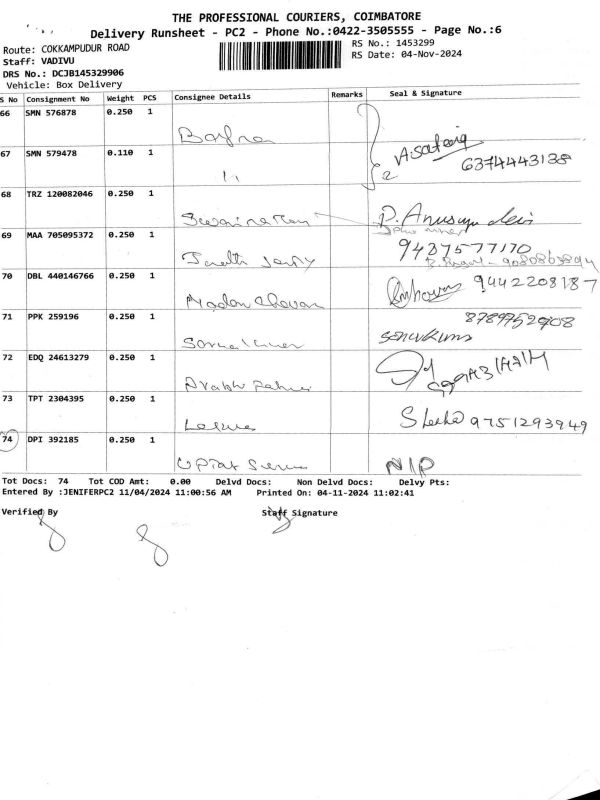 THE PROFESSIONAL COURIERS, COIMBATORE
Delivery Runsheet - PC2 - Phone No.:0422-3505555 - Page No.:6
Route: COKKAMPUDUR ROAD
RS No.: 1453299
Staff: VADIVU
RS Date: 04-Nov-2024
DRS No.: DCJB145329906
Vehicle: Box Delivery
S No Consignment No Weight PCS Consignee Details Remarks Seal & Signature
66 SMN 576878 0.250 1
67 SMN 579478 0.110 1 11 2 A.Sateeq 6374443138
68 TRZ 120082046 0.250 1 P. Anusuya devi
69 MAA 705095372 0.250 1 9487577170
70 DBL 440146766 0.250 1 Madan Chavan 9442208187
71 PPK 259196 0.250 1 8789752908
72 EDQ 24613279 0.250 1
73 TPT 2304395 0.250 1 9751293949
74 DPI 392185 0.250 1 N/P
Tot Docs: 74 Tot COD Amt: 0.00 Delvd Docs: Non Delvd Docs: Delvy Pts:
Entered By :JENIFERPC2 11/04/2024 11:00:56 AM Printed On: 04-11-2024 11:02:41
Verified By Staff Signature